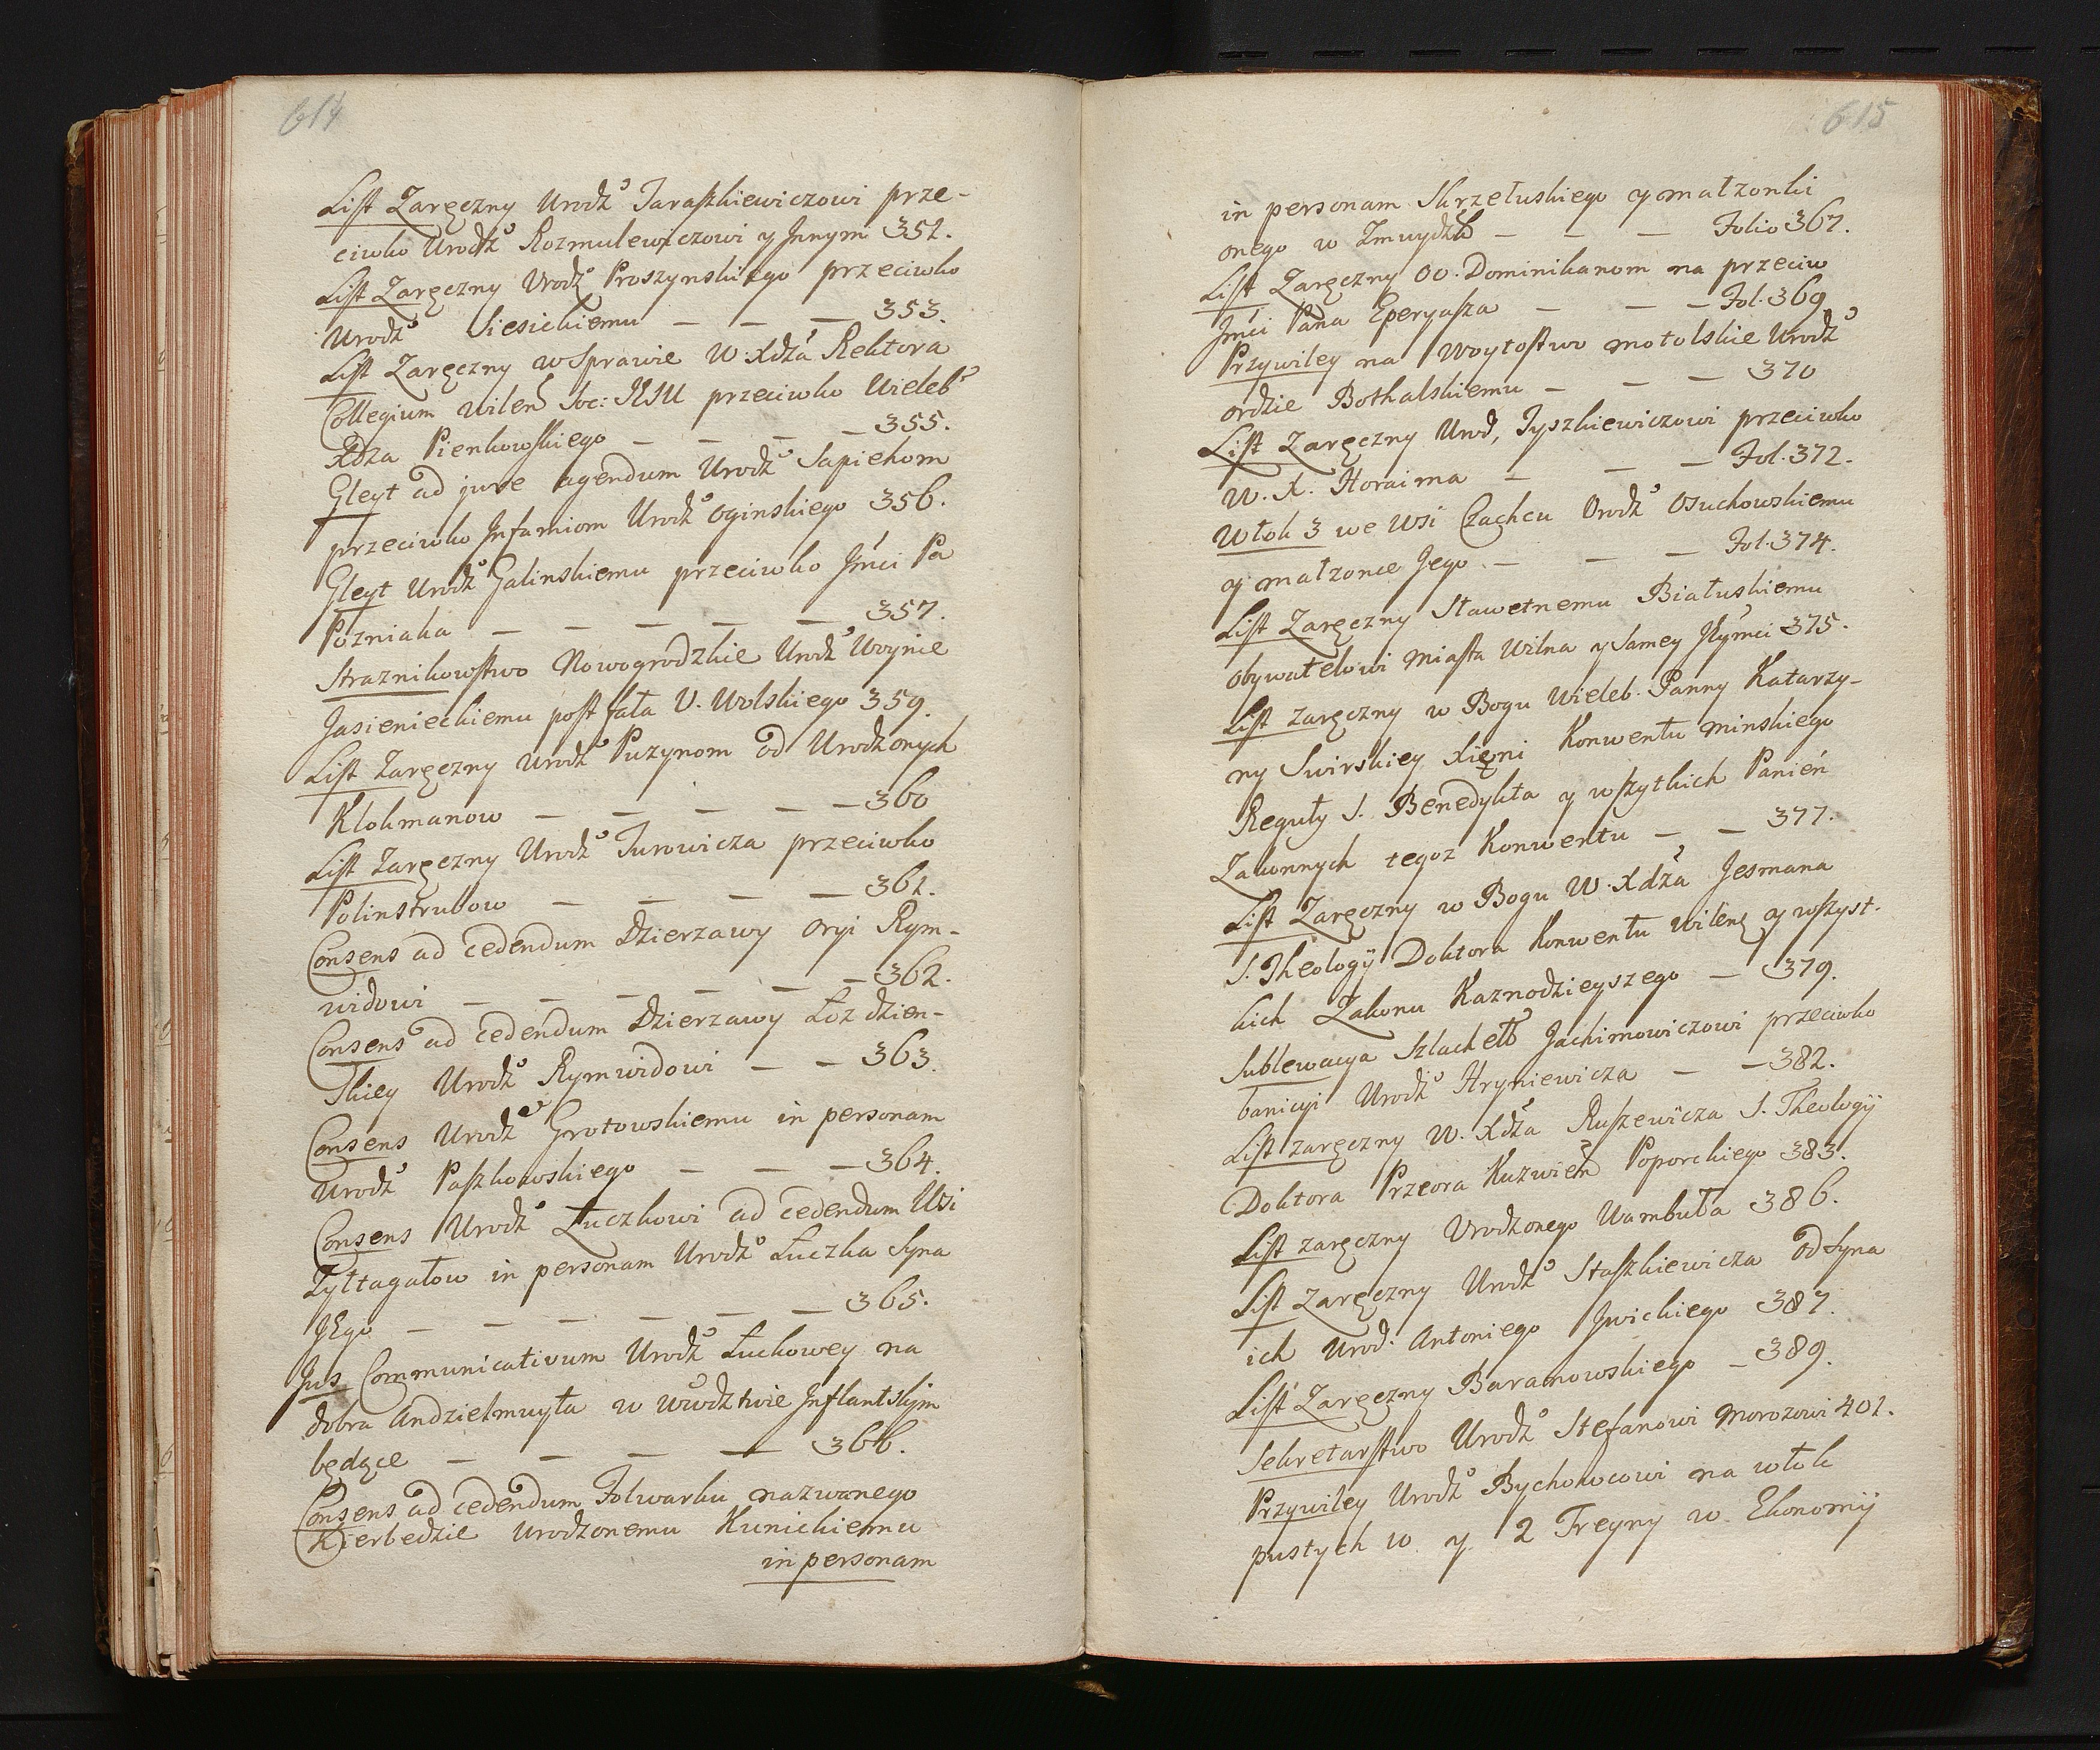 614
List Zaręczny Urodz Taraszkiewiczowi prze-
ciwko Urodz Rozmulewiczowi y Innym 352.
List Zaręczny Urodz Proszynskiego przeciwko
Urodz Siesickiemu — — — 353.
List Zaręczny w Sprawie W. Xdza Rektora
Collegium Wilen Soc: JESU przeciwko Wieleb
Xdza Pienkowskiego — — — — 355.
Gleyt ad jure agendum Urodz Sapiehom
przeciwko Infamiom Urodz Oginskiego 356.
Gleyt Urodz Galinskiemu przeciwko Jmći Pa
Pozniaka — — — — — 357.
Straznikowstwo Nowogrodzkie Urodz Woynie
Jasienieckiemu post fata U. Wolskiego 359.
List Zaręczny Urodz Puzynom od Urodzonych
Klokmanow — — — — — 360
List Zaręczny Urodz Turowicza przeciwko
Polinstrubow — — — — 361.
Consens ad cedendum Dzierzawy Oryi Rym-
widowi — — — — — — 362.
Consens ad cedendum Dzierzawy Łozdzien-
skiey Urodz Rymwidowi — — 363.
Consens Urodz Grotowskiemu in personam
Urodz Paszkowskiego — — — 364.
Consens Urodz Łuczkowi ad cedendum Wsi
Zyltagałow in personam Urodz Łuczka Syna
JEgo — — — — — — 365.
Jus Communicativum Urodz Łuckowey na
dobra Andzielmuyża w Wwdztwie Inflantskim
będące — — — — 366.
Consens ad cedendum Folwarku nazwanego
Kierbedzie Urodzonemu Kunickiemu
in personam
615
in personam Skrzetuskiego y małzonki
onego w Zmuydzi — — — Folio 367.
List Zaręczny OO. Dominikanom na przeciw
Jmći Pana Eperyasza — — — Fol. 369
Przywiley na Woytostwo motolskie Urodz
ordzie Bothalskiemu — — — 370
List Zaręczny Urod, Tyszkiewiczowi przeciwko
W. X. Horaima — — — Fol. 372.
Włok 3 we Wsi Czachcu Urodz Osuchowskiemu
y małzonce Jego — — — Fol. 374.
List Zaręczny Sławetnemu Białuskiemu
Obywatelowi Miasta Wilna y Samey JEymći 375.
List zaręczny w Bogu Wieleb. Panny Katarzy-
ny Swirskiey Xięni Konwentu Minskiego
Reguły S. Benedykta y wszytkich Panień
Zakonnych tegoz Konwentu — — 377.
List Zaręczny w Bogu W. Xdza Jesmana
S. Theologij Doktora Konwentu Wilen y wszyst-
kich Zakonu Kaznodzieyszego — 379.
Sublewacya Szlachetn Jachimowiczowi przeciwko
banicyi Urodz Hryniewicza — — 382.
List zaręczny W. Xdza Ruszewicza S. Theologij
Doktora Przeora Kuzwien Poporckiego 383.
List zaręczny Urodzonego Wambuta 386.
List Zaręczny Urodz Staszkiewicza od Syna
ich Urod. Antoniego Jwickiego 387.
List Zaręczny Baranowskiego — 389.
Sekretarstwo Urodz Stefanowi Morozowi 401.
Przywiley Urodz Bychowcowi na włok
pustych 10. y 2 Freyny w Ekonomij